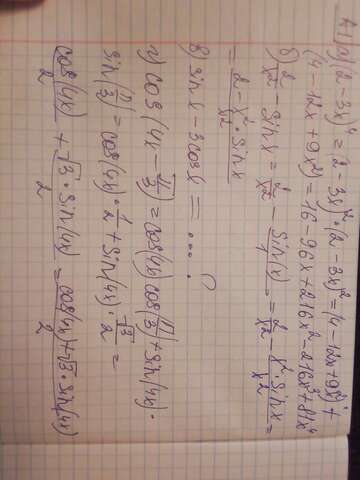 №1 а) (2-3x)⁴ = (2-3x)²·(2-3x)² = (4-12x+9x²)+
(4-12x+9x²) = 16-96x+216x²-216x³+81x⁴
б) 2/x² - sinx = 2/x² - sin(x)/1 = 2/x² - x²·sinx/x² =
= 2-x²·sinx/x²
в) sinx-3cosx = ....?
г) cos(4x-π/3) = cos(4x)cos(π/3)+sin(4x)·
sin(π/3) = cos(4x)·1/2+sin(4x)·√3/2 =
cos(4x)/2 + √3·sin(4x)/2 = cos(4x)+√3·sin(4x)/2